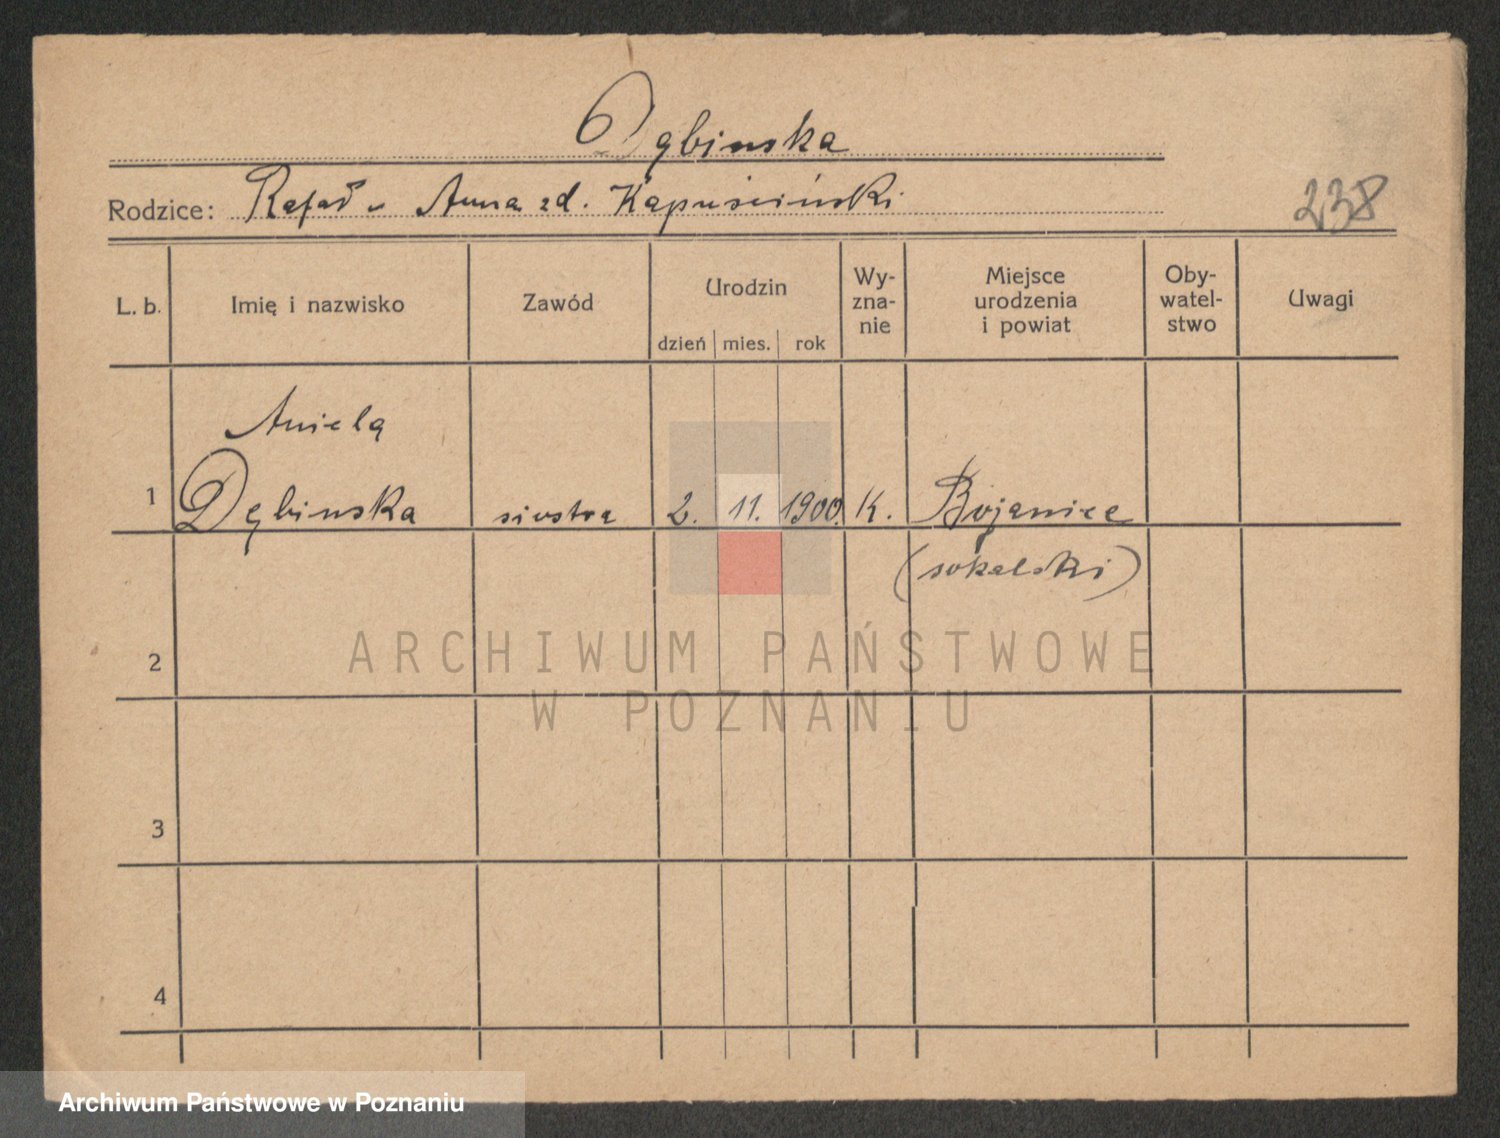 Dębinska
Rodzice: Rafał u Anna zd. Kapuściński
238
L. b.
Imię i nazwisko
Zawód
Urodzin
dzień mies. rok
Wy-
zna-
nie
Miejsce
urodzenia
i powiat
Oby-
watel-
stwo
Uwagi
Aniela
1 Dębinska siostra 2. 11. 1900. K. Bojanice
(sokalski)
2
ARCHIWUM PAŃSTWOWE
W POZNANIU
3
4
Archiwum Państwowe w Poznaniu